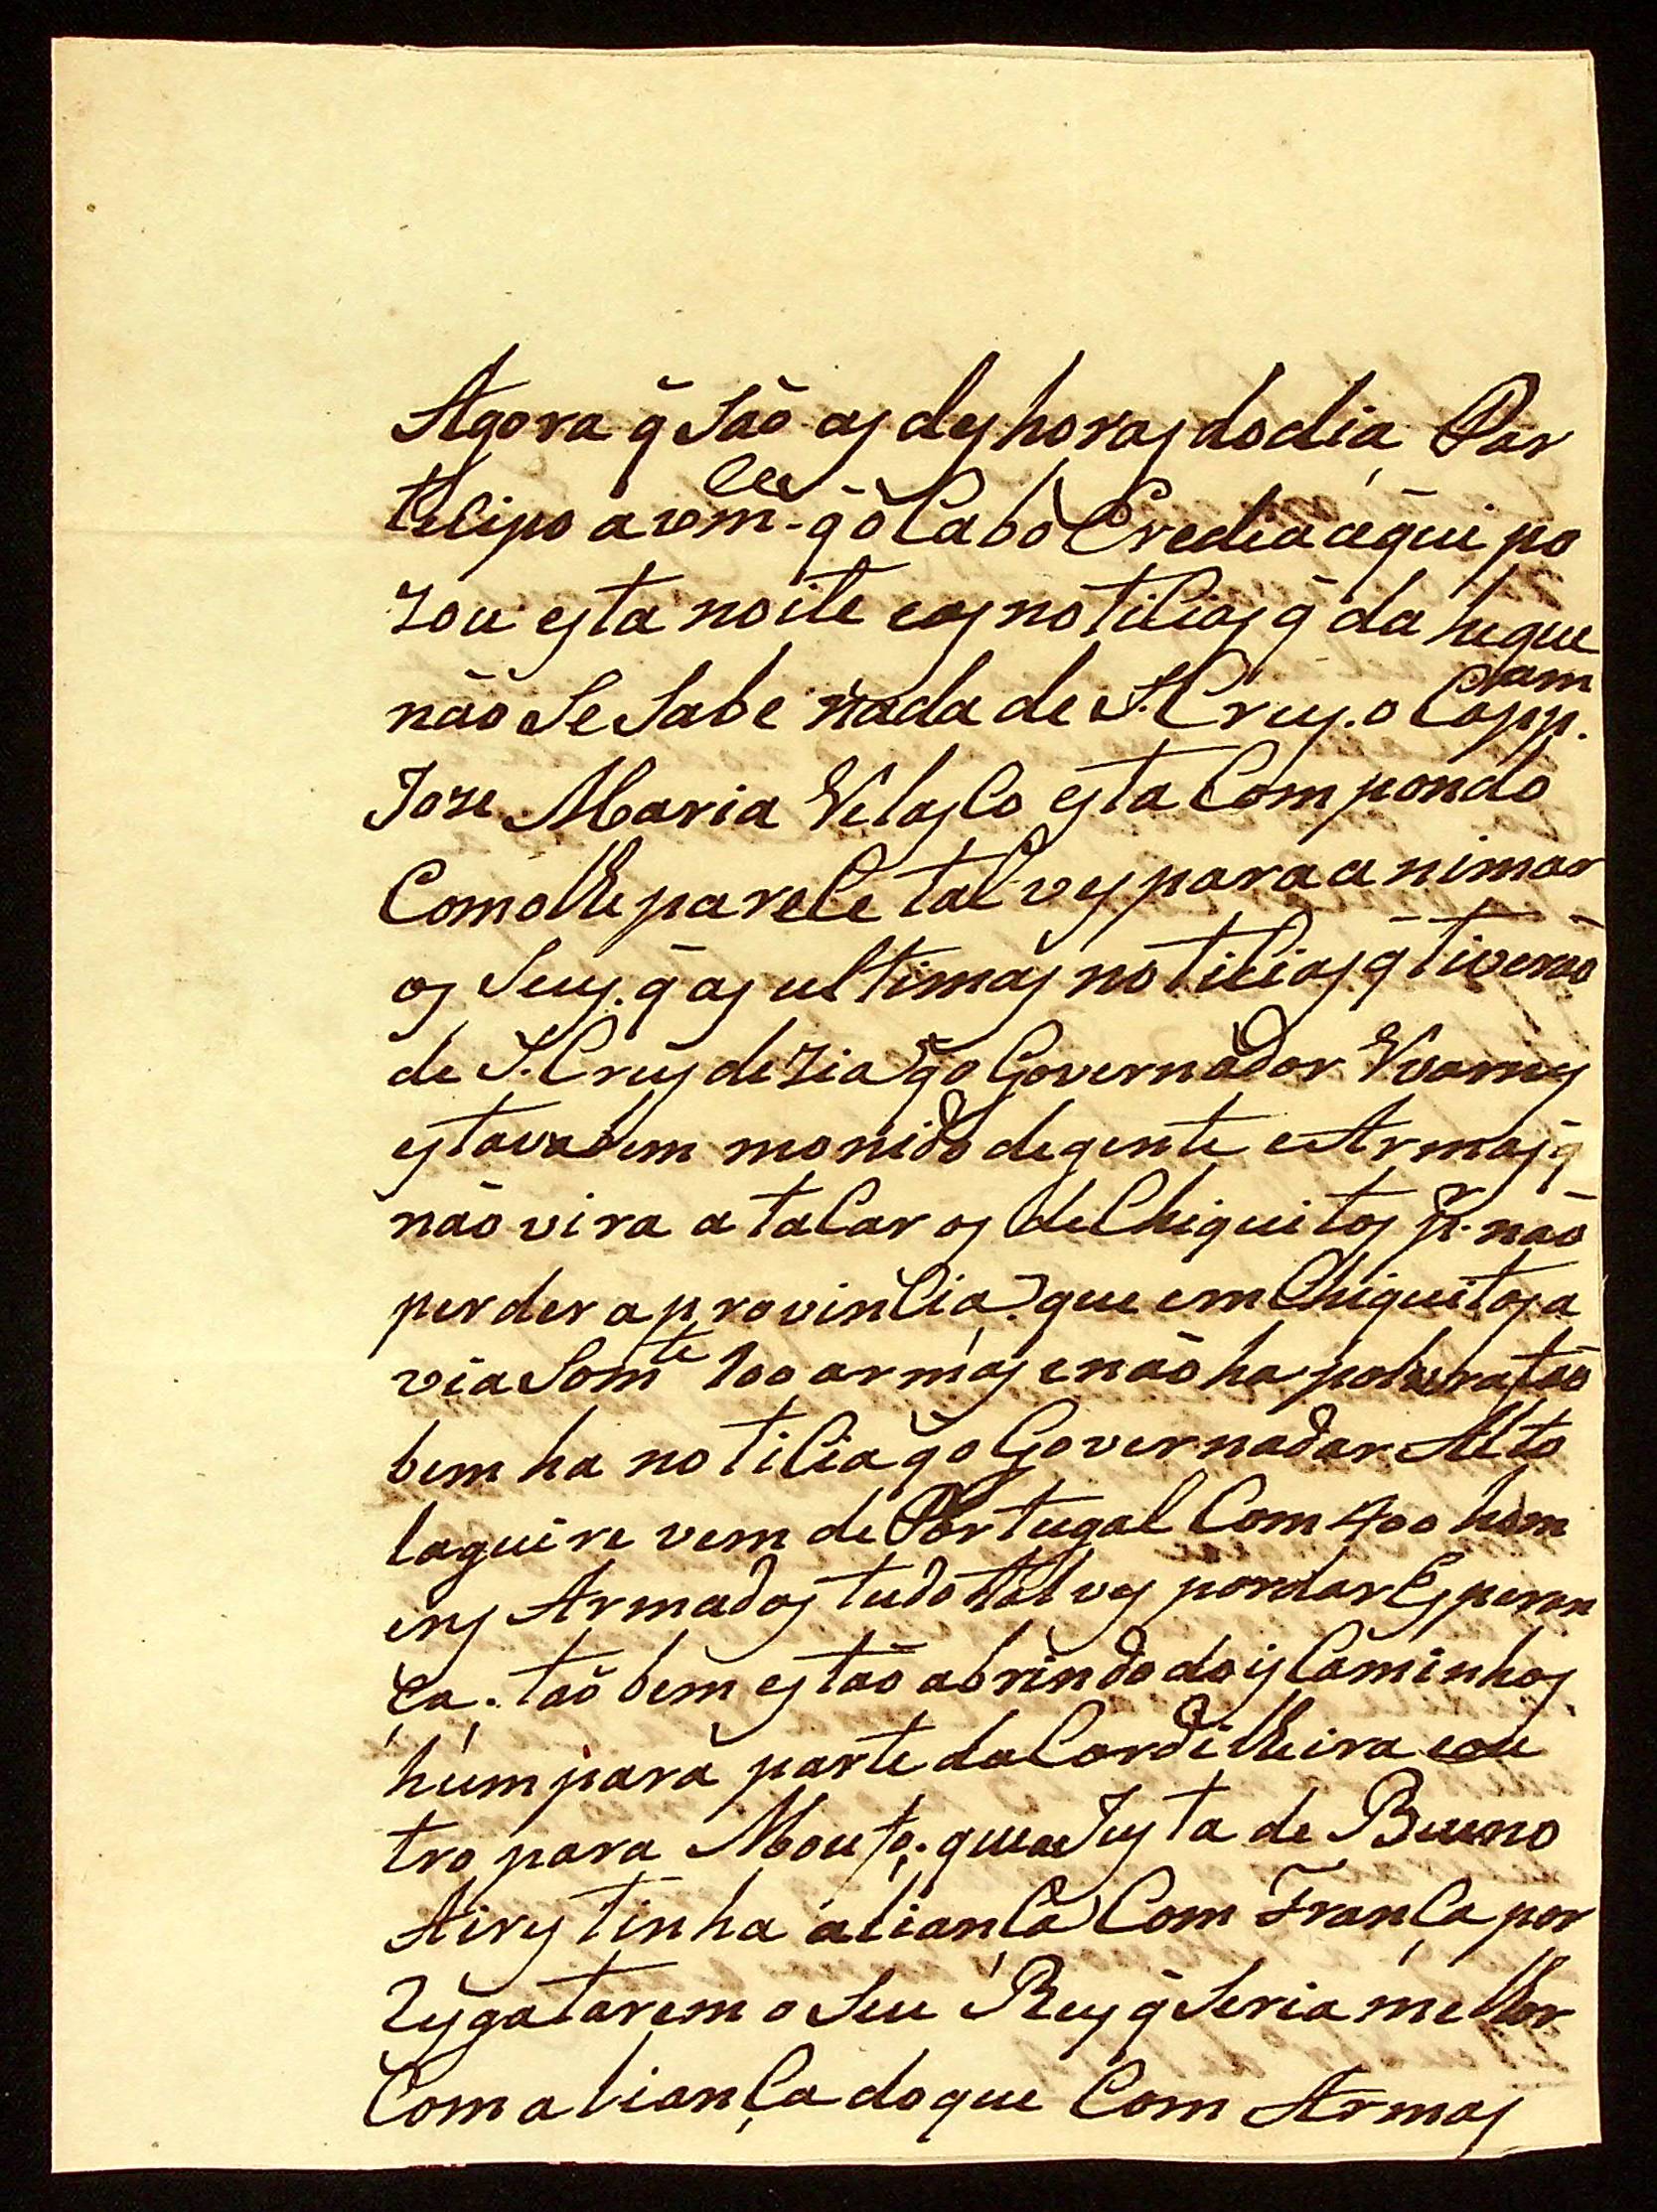 Agora q̃ São as des horas do dia Par
ticipo a vm.ce q̃ o Cabo Eredia aqui po
zou esta noite e as noticias q̃ da he que
não Se Sabe nada de S. Crus. o Capp.am
Joze Maria Velasco esta Compondo
Como lhe parece tal ves para animar
os Seus. q̃ as ultimas noticias q̃ tiverão
de S. Crus dezia q̃ o Governador Warnes
estava bem monido de gente e Armas q̃
não vira atacar os de Chiquitos p.r não
perder a provincia: que em Chiquitos a
via Som.te 100 armas e não ha polvora tão
bem ha noticia q̃ o Governador Alto
laguire vem de Portugal Com 400 hom
ens Armados tudo tal ves por dar Esperan
ça. tão bem estão abrindo dois Caminhos
hum para parte da Cordilheira e ou
tro para Mouto. que a Justa de Bueno
Aires tinha aliança Com França por
Resgatarem o Seu Rey q̃ Seria melhor
Com aliança do que Com Armas